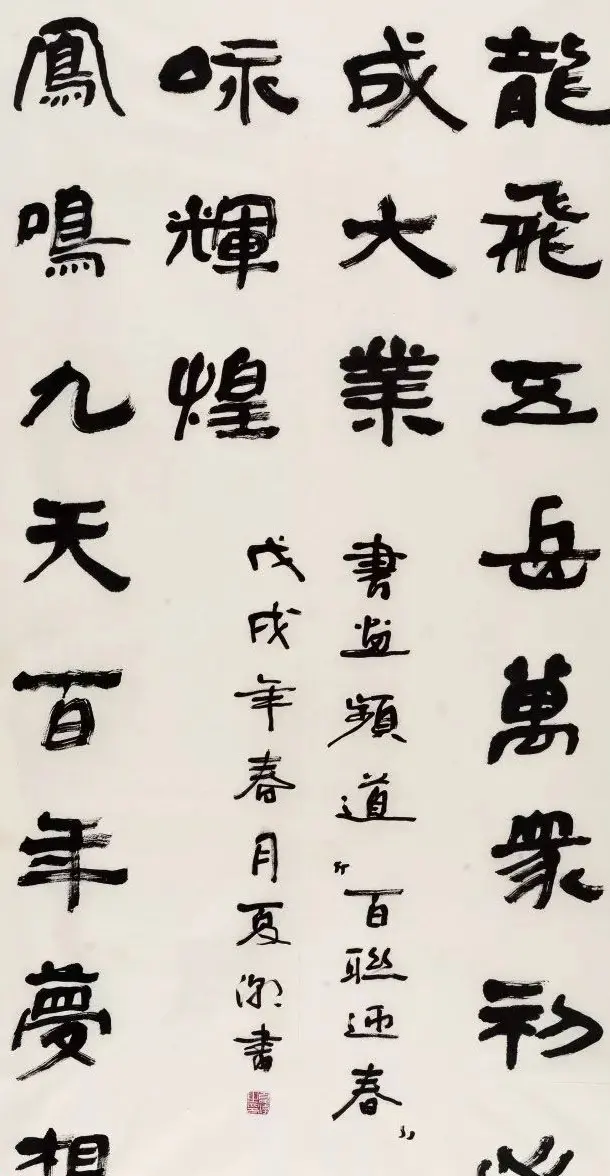 龍飛五岳萬衆初心
成大業
書畫頻道“百聯迎春”
鳳鳴九天百年夢想
咏輝煌
戊戌年春月夏潮書